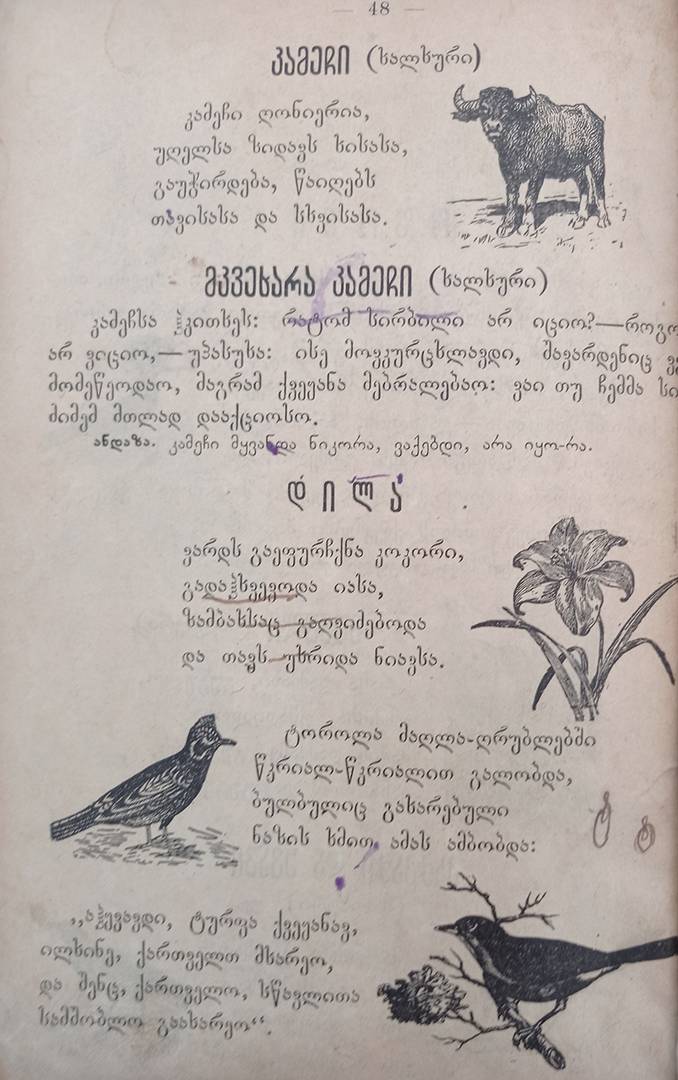 — 48 —
კამეჩი (ხალხური)
კამეჩი ღონიერია,
უღელსა ზიდავს ხისასა,
გაუჭირდება, წაიღებს
თავისასა და სხვისასა.
მკვეხარა კამეჩი (ხალხური)
კამეჩსა ჰკითხეს: რატომ სირბილი არ იციო?—როგო
არ ვიციო,— უპასუხა: ისე მოვკურცხლავდი, შავარდენიც ვე
მომეწეოდაო, მაგრამ ქვეყანა მებრალებაო: ვაი თუ ჩემმა სი
მიმემ მთლად დააქციოსო.
ანდაზა. კამეჩი მყვანდა ნიკორა, ვაქებდი, არა იყო-რა.
დილა
ვარდს გაეფურჩქნა კოკორი,
გადაჰხვეოდა იასა,
ზამბახსაც გაღვიძებოდა
და თავს უხრიდა ნიავსა.
ტოროლა მაღლა-ღრუბლებში
წკრიალ-წკრიალით გალობდა,
ბულბულიც გახარებული
ნაზის ხმით ამას ამბობდა:
ტ ტ
„აჰყვავდი, ტურფა ქვეყანავ,
ილხინე, ქართველთ მხარეო,
და შენც, ქართველო, სწავლითა
სამშობლო გაახარეო“.